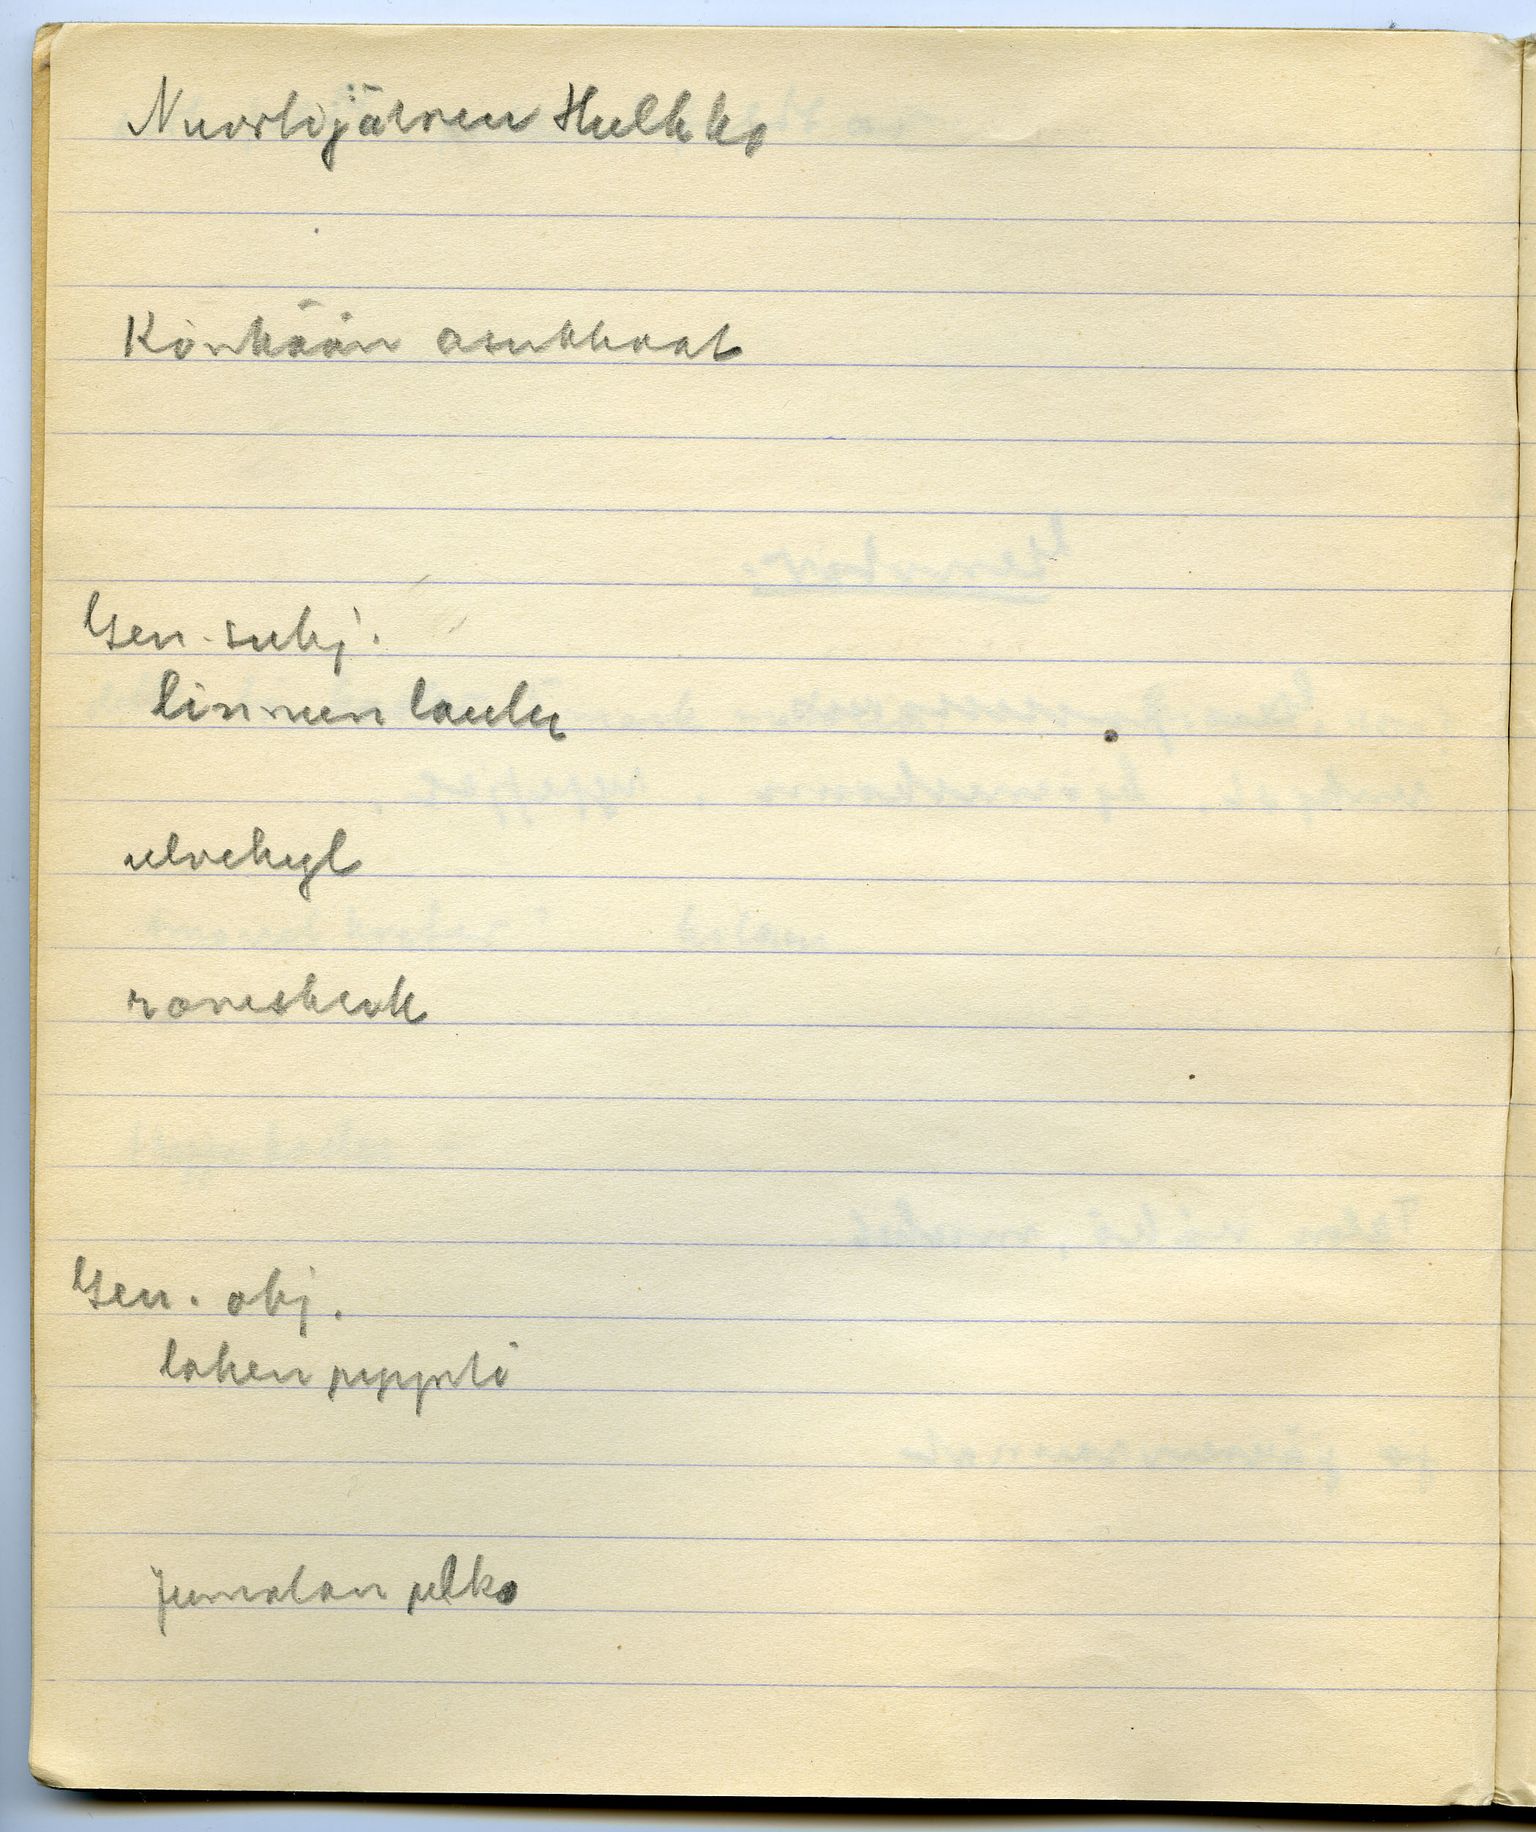 Nuortijärven Hulkko
Könkään asukkaat
Gen. subj.
linnun laulu
ulvehyl
raneskrik
Gen. obj.
lohen pyynti
jumalan pelko